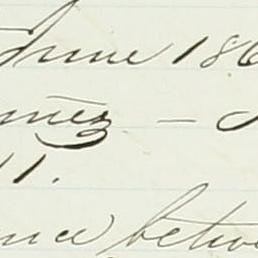 June 186
mes —
11.
nce betwe